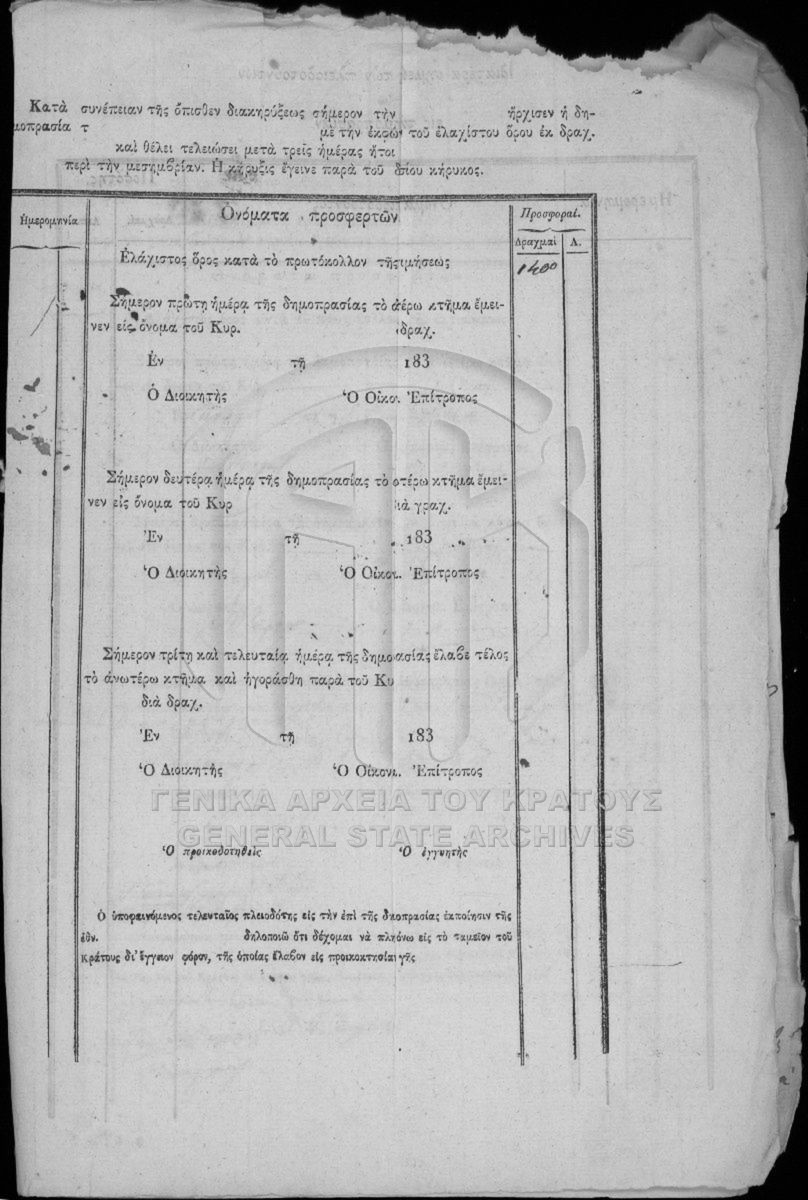 Κατὰ συνέπειαν τῆς ὄπισθεν διακηρύξεως σήμερον τὴν ἤρχισεν ἡ δη-
μοπρασία τ μὲ τὴν ἐκφώ τοῦ ἐλαχίστου ὅρου ἐκ δραχ.
καὶ θέλει τελειώσει μετὰ τρεῖς ἡμέρας ἤτοι
περὶ τὴν μεσημβρίαν. Ἡ κήρυξις ἔγεινε παρὰ τοῦ δίου κήρυκος.
Ἡμερομηνία
Ὀνόματα προσφερτῶν
Προσφοραί.
Δραχμαὶ Λ.
Ἐλάχιστος ὅρος κατὰ τὸ πρωτόκολλον τῆς τιμήσεως
1400
Σήμερον πρώτη ἡμέρα τῆς δημοπρασίας τὸ ἀ τέρω κτῆμα ἔμει-
νεν εἰς ὄνομα τοῦ Κυρ. δραχ.
Ἐν τῇ 183
Ὁ Διοικητὴς Ὁ Οἰκο. Ἐπίτροπος
Σήμερον δευτέρᾳ ἡμέρᾳ τῆς δημοπρασίας τὸ οτέρω κτῆμα ἔμει-
νεν εἰς ὄνομα τοῦ Κυρ ιὰ γραχ.
Ἐν τῇ 183
Ὁ Διοικητὴς Ὁ Οἰκον. Ἐπίτροπος
Σήμερον τρίτη καὶ τελευταίᾳ ἡμέρᾳ τῆς δημο ασίας ἔλαβε τέλος
τὸ ἀνωτέρω κτῆμα καὶ ἠγοράσθη παρὰ τοῦ Κυ
διὰ δραχ.
Ἐν τῇ 183
Ὁ Διοικητὴς Ὁ Οἰκον. Ἐπίτροπος
ΓΕΝΙΚΑ ΑΡΧΕΙΑ ΤΟΥ ΚΡΑΤΟΥΣ
GENERAL STATE ARCHIVES
Ὁ προικοδοτηθεὶς Ὁ ἐγγυητὴς
Ὁ ὑποφαινόμενος τελευταῖος πλειοδότης εἰς τὴν ἐπὶ τῆς δημοπρασίας ἐκποίησιν τῆς
ἐθν. δηλοποιῶ ὅτι δέχομαι νὰ πληόνω εἰς τὸ ταμεῖον τοῦ
κράτους δι' ἔγγειον φόρον, τῆς ὁποίας ἔλαβον εἰς προικοκτησίαν γῆς